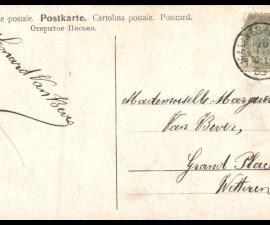 te postale. Postkarte. Cartolina postale. Postcard.
Открытое Письмо.
Leonard Van Bever
Mademoiselle Margue
Van Bever,
Grand Place
Wetteren